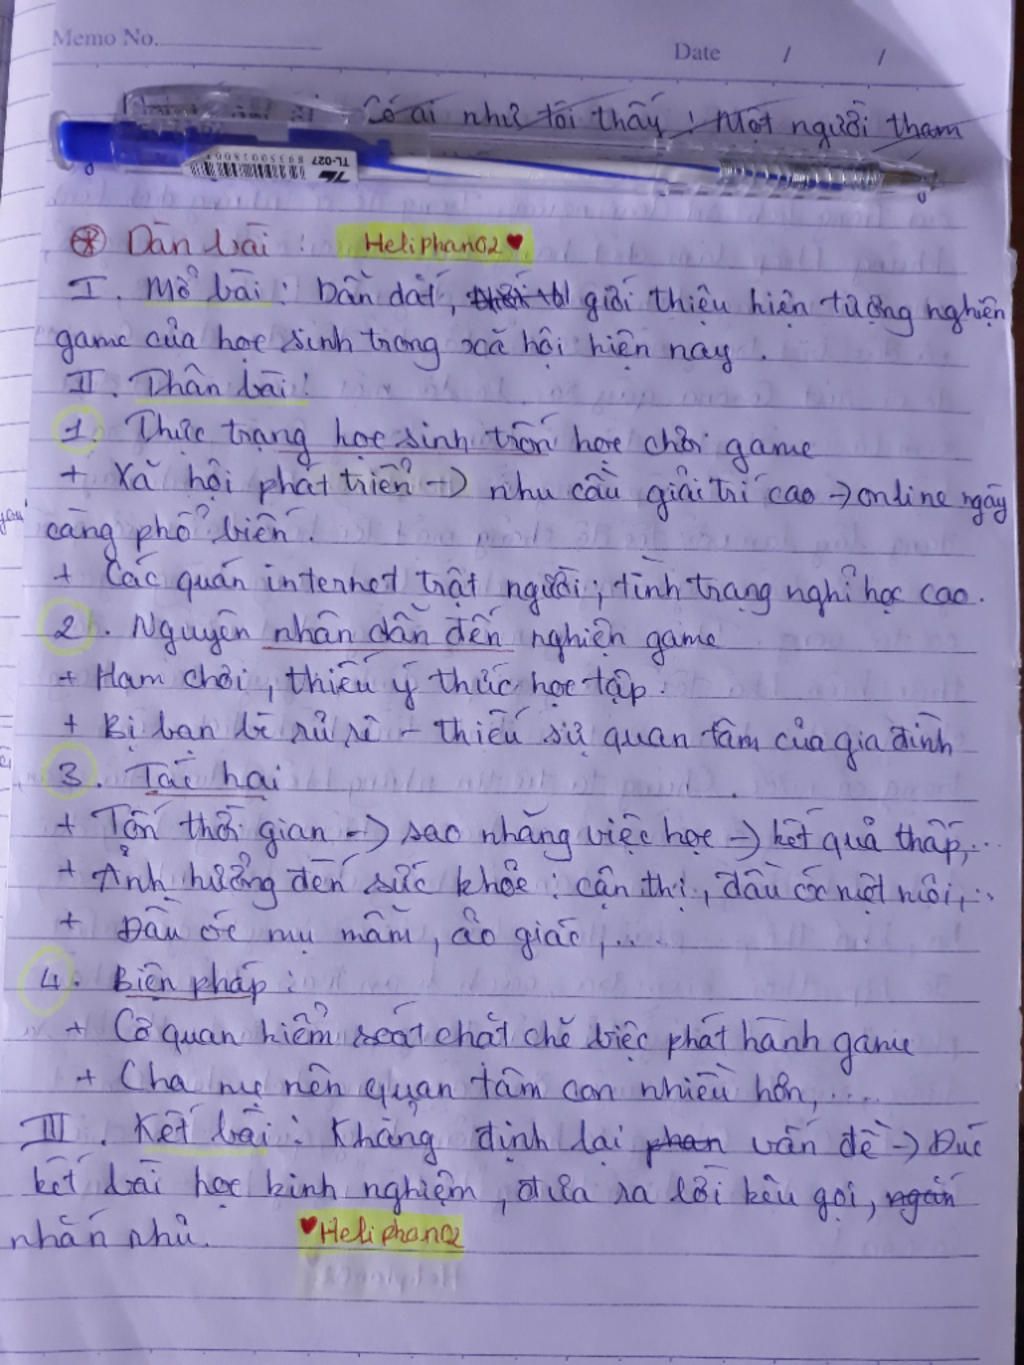 Memo No.
Date / /
Có ai như tôi thấy ! Một người tham
TL-027
⊛ Dàn bài : Heliphan02 ♥
I. Mở bài : Dẫn dắt, giới thiệu hiện tượng nghiện
game của học sinh trong xã hội hiện nay .
II. Thân bài :
1. Thực trạng học sinh trốn học chơi game
+ Xã hội phát triển -> nhu cầu giải trí cao -> online ngày
càng phổ biến .
+ Các quán internet trật người ; tình trạng nghỉ học cao .
2. Nguyên nhân dẫn đến nghiện game
+ Ham chơi , thiếu ý thức học tập .
+ Bị bạn bè rủ rê - thiếu sự quan tâm của gia đình
3. Tác hại
+ Tốn thời gian -> sao nhãng việc học -> kết quả thấp,...
+ Ảnh hưởng đến sức khỏe : cận thị , đầu óc mệt mỏi,...
+ Đầu óc mụ mẫm , ảo giác ,...
4. Biện pháp :
+ Cơ quan kiểm soát chặt chẽ việc phát hành game
+ Cha mẹ nên quan tâm con nhiều hơn, ....
III. Kết bài : Khẳng định lại phan vấn đề -> Đúc
kết bài học kinh nghiệm , đưa ra lời kêu gọi , ngắn
nhắn nhủ .
♥Heliphan02